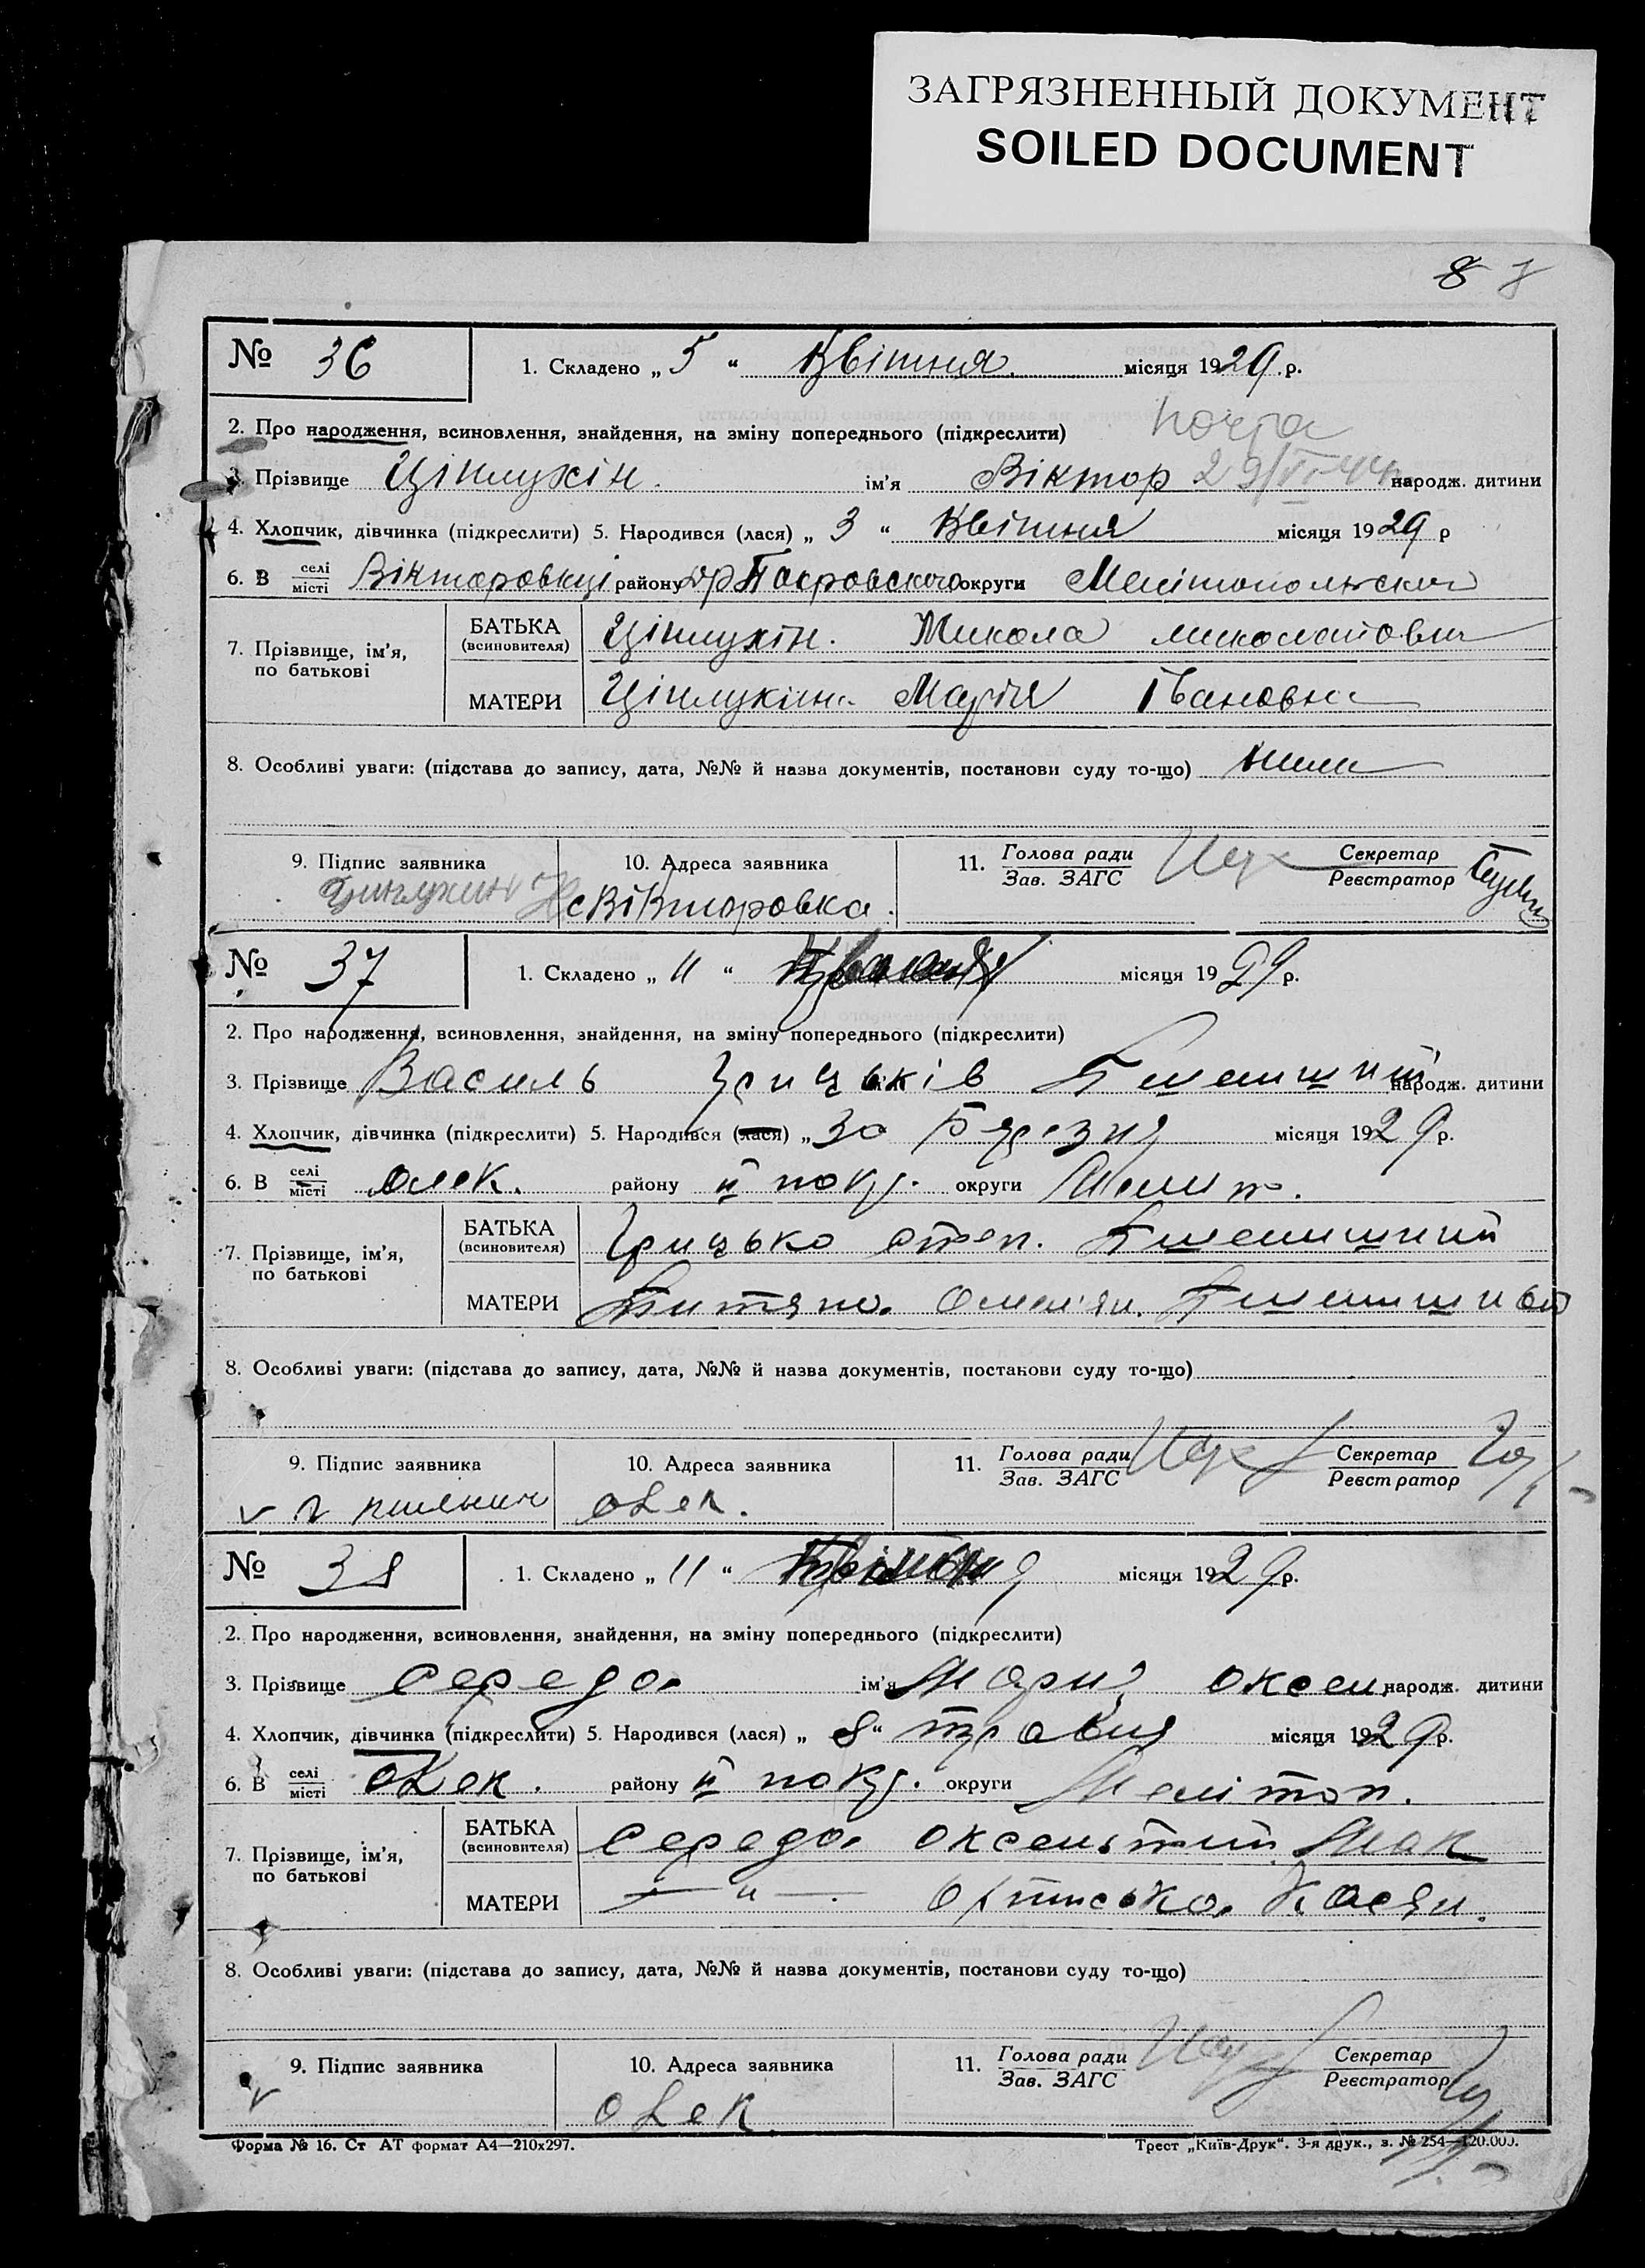 ЗАГРЯЗНЕННЫЙ ДОКУМЕНТ
SOILED DOCUMENT
8
№ 36 1. Складено „ 5 “ Квітня місяця 1929 р.
2. Про народження, всиновлення, знайдення, на зміну попереднього (підкреслити) почта
3. Прізвище ім'я Віктор народж. дитини
4. Хлопчик, дівчинка (підкреслити) 5. Народився (лася) „ 3 “ Квітня місяця 1929 р
6. В селі/місті Вікторовкці району Покровского округи Мелітопольскої
7. Прізвище, ім'я, по батькові
БАТЬКА (всиновителя) Микола
МАТЕРИ Марія Івановна
8. Особливі уваги: (підстава до запису, дата, №№ й назва документів, постанови суду то-що)
9. Підпис заявника 10. Адреса заявника 11. Голова ради/Зав. ЗАГС Секретар/Реєстратор
Вікторовка
№ 37 1. Складено „ 11 “ місяця 1929 р.
2. Про народження, всиновлення, знайдення, на зміну попереднього (підкреслити)
3. Прізвище Василь Грицьків Пшеишний народж. дитини
4. Хлопчик, дівчинка (підкреслити) 5. Народився (лася) „ 30 Березня місяця 1929 р.
6. В селі/місті олек. району ІІ покр. округи Мелит.
7. Прізвище, ім'я, по батькові
БАТЬКА (всиновителя) Грицько степ.
МАТЕРИ Омел'ян.
8. Особливі уваги: (підстава до запису, дата, №№ й назва документів, постанови суду то-що)
9. Підпис заявника 10. Адреса заявника 11. Голова ради/Зав. ЗАГС Секретар/Реєстратор
олек.
№ 38 1. Складено „ 11 “ місяця 1929 р.
2. Про народження, всиновлення, знайдення, на зміну попереднього (підкреслити)
3. Прізвище Середа ім'я Мария оксен. народж. дитини
4. Хлопчик, дівчинка (підкреслити) 5. Народився (лася) „ 8 “ травня місяця 1929 р.
6. В селі/місті олек. району ІІ покр. округи Мелітоп.
7. Прізвище, ім'я, по батькові
БАТЬКА (всиновителя) Середа оксентий Мак
МАТЕРИ — „ — Касян.
8. Особливі уваги: (підстава до запису, дата, №№ й назва документів, постанови суду то-що)
9. Підпис заявника 10. Адреса заявника 11. Голова ради/Зав. ЗАГС Секретар/Реєстратор
олек
Форма № 16. Ст АТ формат А4—210х297. Трест „Київ-Друк“. 3-я друк., з. № 254—120.000.